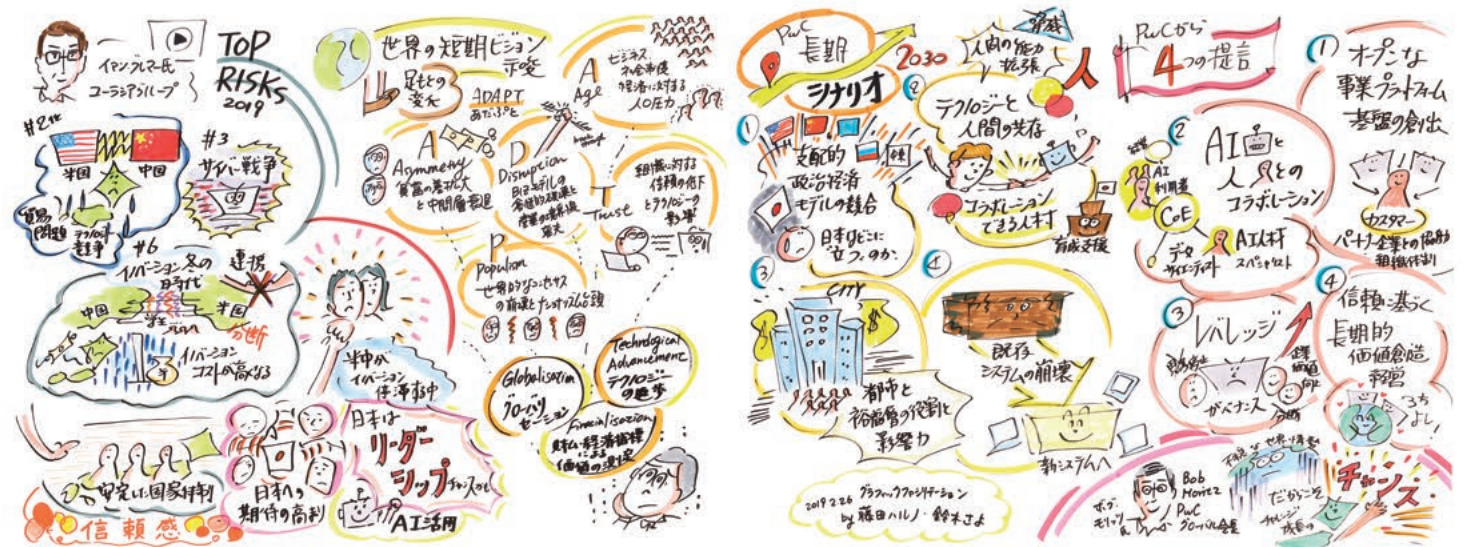 イアン・ブレマー氏
ユーラシアグループ
TOP
RISKS
2019
#2 他
米国
中国
貿易
問題
テクノロジー
戦争
#3
サイバー戦争
#6
イノベーション冬の
時代
連携
中国
米国
分断
学生
イノベーション
コストが高くなる
安定した国家体制
信頼感
米中が
イノベーション
停滞する中
日本への
期待の高判
日本は
リーダー
シップ
チャンスかも
AI活用
世界の短期ビジョン
示唆
足もとの
変化
ADAPT
あだぷと
A
Asymmetry
貧富の差拡大
と中間層衰退
D
Disruption
ビジネスモデルの
産業の
A
Age
ビジネス
社会制度
経済に対する
人口圧力
P
Populism
世界的なコンセンサス
の崩壊とナショナリズム台頭
Trust
組織に対する
信頼の低下
とテクノロジーの
影響
Globalisation
グローバリ
ゼーション
Technological
Advancement
テクノロジー
の進歩
Financialisation
財務・経済指標
による
価値の測定
PwC
長期
シナリオ
2030
①
支配的
政治経済
モデルの競合
日本はどこに
立つのか
②
人間の能力
拡張
テクノロジーと
人間の共存
コラボレーション
できる人材
育成支援
③
CITY
都市と
裕福層の役割と
影響力
④
既存
システムの崩壊
新システムへ
2019.2.26 グラフィックファシリテーション
by 藤田ハルノ・鈴木さよ
PwCから
4つの提言
①
オープンな
事業プラットフォーム
基盤の創出
カスタマー
パートナー企業との協働
組織体制
②
AIと
人とのコラボレーション
経営
AI
利用者
CoE
データ
サイエンティスト
AI人材
スペシャリスト
③
レバレッジ
ガバナンス
企業
価値
向上
④
信頼に基づく
長期的
価値創造
経営
3方
よし!
ボブ・
モリッツ
Bob
Moritz
PwC
グローバル会長
世界情勢
だからこそ
チャレンジ
成長の
チャンス